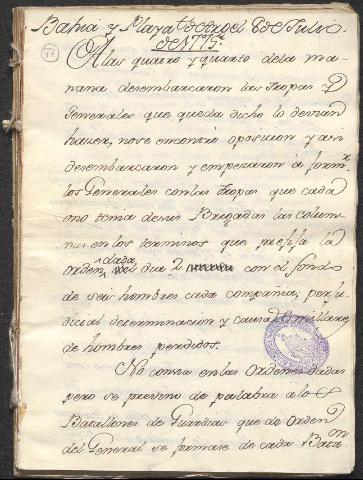 Bahia y Playa de Argel 8 de Julio
de 1775.
A las quatro y quarto de la ma-
ñana desembarcaron las tropas y
Generales que queda dicho lo devian
hacer, no se encontró oposicion y asi
desembarcaron y empezaron à form.r
los Generales con las tropas que cada
uno tenia de sus Brigadas las colum-
nas en los terminos que prefija la
orden dada el dia 2 con el fondo
de seis hombres cada compañia, perju-
dicial determinacion y causa de millares
de hombres perdidos.
No consta en las Ordenes dadas
pero se previno de palabra a los
Batallones de Guardias que de orden
del General se formase de cada Bata.on